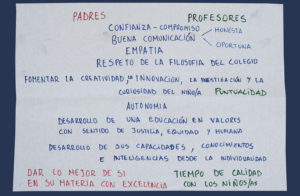 PADRES PROFESORES
CONFIANZA - COMPROMISO
BUENA COMUNICACIÓN HONESTA
OPORTUNA
EMPATIA
RESPETO DE LA FILOSOFIA DEL COLEGIO
FOMENTAR LA CREATIVIDAD, LA INNOVACIÓN, LA INVESTIGACIÓN Y LA
CURIOSIDAD DEL NIÑO/A PUNTUALIDAD
AUTONOMIA
DESARROLLO DE UNA EDUCACIÓN EN VALORES
CON SENTIDO DE JUSTICIA, EQUIDAD Y HUMANO
DESARROLLO DE SUS CAPACIDADES, CONOCIMIENTOS
E INTELIGENCIAS DESDE LA INDIVIDUALIDAD
DAR LO MEJOR DE SI TIEMPO DE CALIDAD
EN SU MATERIA CON EXCELENCIA CON LOS NIÑOS/AS